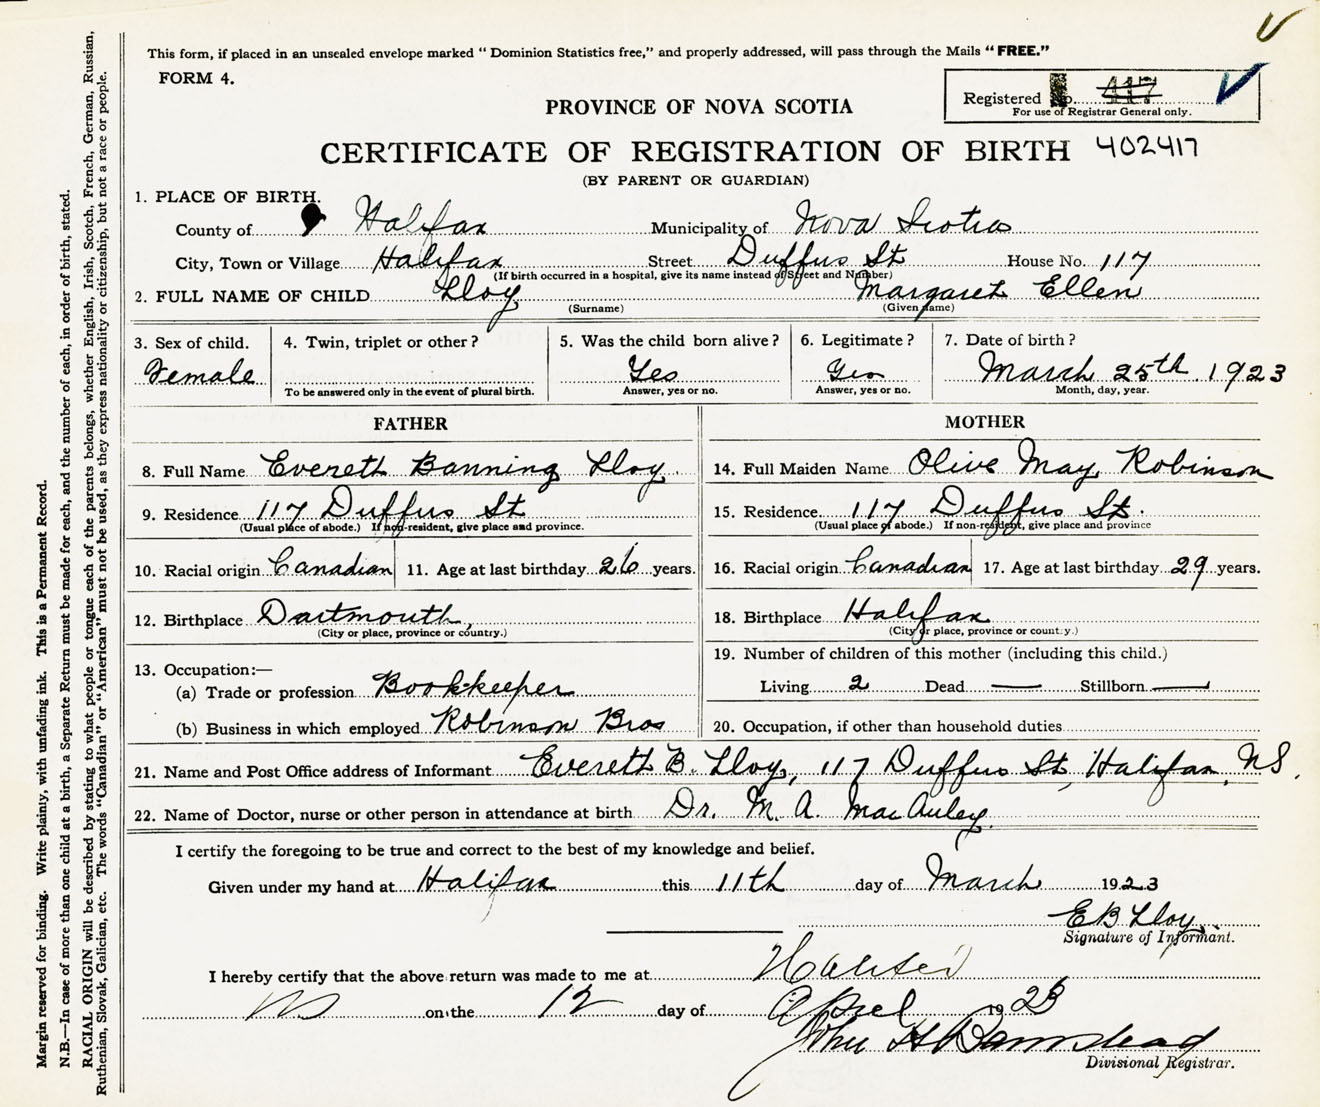 This form, if placed in an unsealed envelope marked " Dominion Statistics free," and properly addressed, will pass through the Mails " FREE."
FORM 4.
Registered No. 417
For use of Registrar General only.
PROVINCE OF NOVA SCOTIA
CERTIFICATE OF REGISTRATION OF BIRTH 402417
(BY PARENT OR GUARDIAN)
1. PLACE OF BIRTH.
County of Halifax Municipality of Nova Scotia
City, Town or Village Halifax Street Duffus St House No. 117
(If birth occurred in a hospital, give its name instead of Street and Number)
2. FULL NAME OF CHILD Lloy Margaret Ellen
(Surname) (Given name)
3. Sex of child. 4. Twin, triplet or other ? 5. Was the child born alive ? 6. Legitimate ? 7. Date of birth ?
Female Yes Yes March 25th 1923
To be answered only in the event of plural birth. Answer, yes or no. Answer, yes or no. Month, day, year.
FATHER MOTHER
8. Full Name Everett Banning Lloy. 14. Full Maiden Name Olive May Robinson
9. Residence 117 Duffus St 15. Residence 117 Duffus St.
(Usual place of abode.) If non-resident, give place and province. (Usual place of abode.) If non-resident, give place and province
10. Racial origin Canadian 11. Age at last birthday 26 years. 16. Racial origin Canadian 17. Age at last birthday 29 years.
12. Birthplace Dartmouth, 18. Birthplace Halifax
(City or place, province or country.) (City or place, province or country.)
19. Number of children of this mother (including this child.)
13. Occupation:—
(a) Trade or profession Bookkeeper Living 2 Dead — Stillborn —
(b) Business in which employed Robinson Bros 20. Occupation, if other than household duties
21. Name and Post Office address of Informant Everett B. Lloy, 117 Duffus St, Halifax, NS.
22. Name of Doctor, nurse or other person in attendance at birth Dr. M. A. MacAuley
I certify the foregoing to be true and correct to the best of my knowledge and belief.
Given under my hand at Halifax this 11th day of March 1923
EB Lloy
Signature of Informant.
I hereby certify that the above return was made to me at
on the 12 day of April 1923
John H Barnstead
Divisional Registrar.
Margin reserved for binding. Write plainly, with unfading ink. This is a Permanent Record.
N.B.—In case of more than one child at a birth, a Separate Return must be made for each, and the number of each, in order of birth, stated.
RACIAL ORIGIN will be described by stating to what people or tongue each of the parents belongs, whether English, Irish, Scotch, French, German, Russian,
Ruthenian, Slovak, Galician, etc. The words "Canadian" or "American" must not be used, as they express nationality or citizenship, but not a race or people.